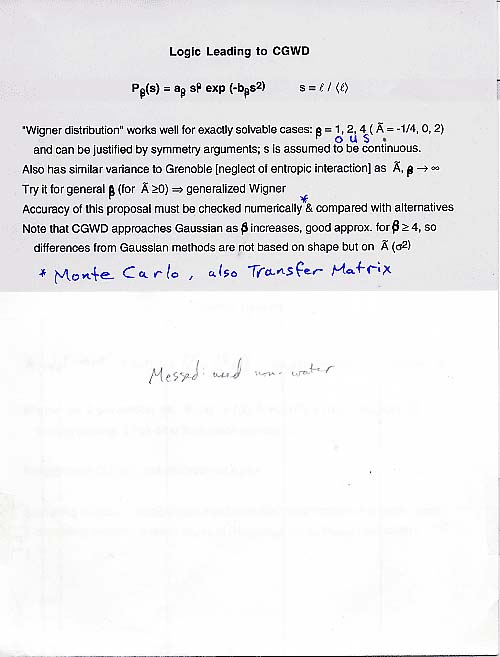 Logic Leading to CGWD
Pβ(s) = aβ sᵝ exp (-bβs²) s = ℓ / ⟨ℓ⟩
"Wigner distribution" works well for exactly solvable cases: β = 1, 2, 4 ( Ã = -1/4, 0, 2)
o u s
and can be justified by symmetry arguments; s is assumed to be continuous.
Also has similar variance to Grenoble [neglect of entropic interaction] as Ã, β → ∞
Try it for general β (for Ã ≥0) ⇒ generalized Wigner
Accuracy of this proposal must be checked numerically* & compared with alternatives
Note that CGWD approaches Gaussian as β increases, good approx. for β ≥ 4, so
differences from Gaussian methods are not based on shape but on Ã (σ²)
* Monte Carlo, also Transfer Matrix
Messed: need non-water